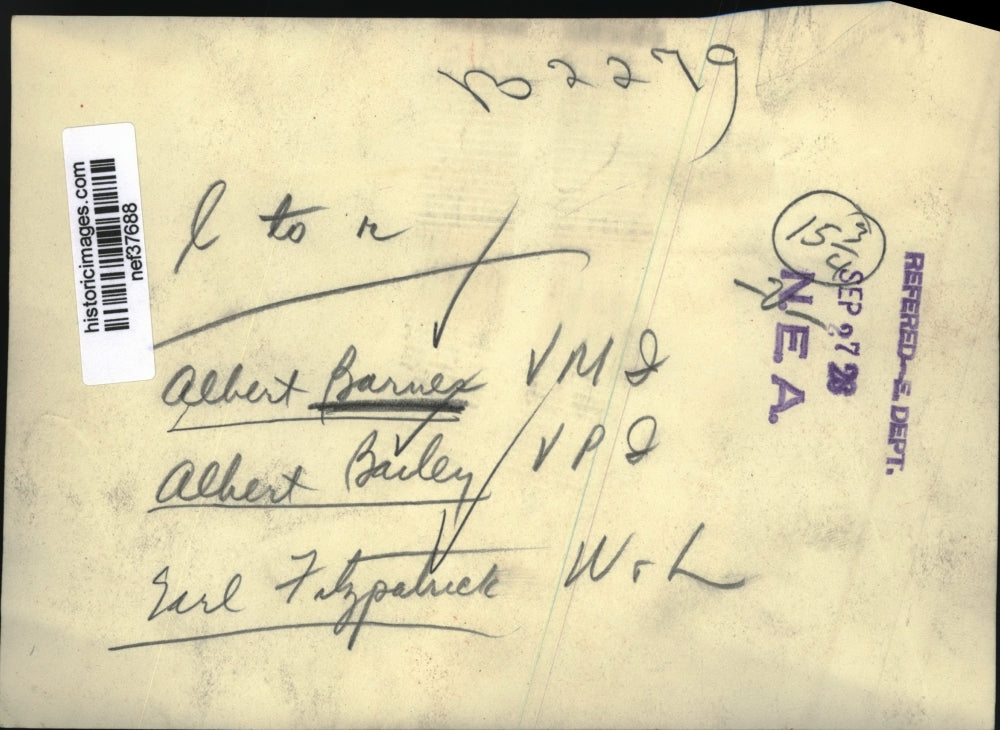 B2279
historicimages.com
nef37688
l to r
Albert Barnes VMI
Albert Bailey VPI
Earl Fitzpatrick W+L
15 3/4
SEP 27 28
N.E.A.
REFERED-E. DEPT.